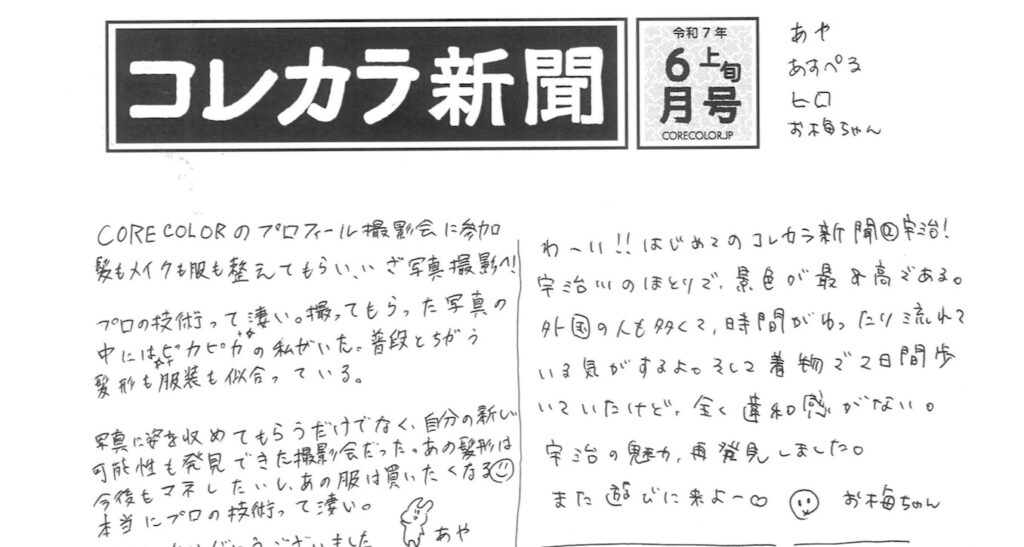 コレカラ新聞
令和7年
6上旬
月号
CORECOLOR.JP
あや
あすぺる
ヒロ
お梅ちゃん
CORECOLORのプロフィール撮影会に参加
髪もメイクも服も整えてもらい、いざ写真撮影へ!
プロの技術って凄い。撮ってもらった写真の
中にはピカピカの私がいた。普段とちがう
髪形も服装も似合っている。
写真に姿を収めてもらうだけでなく、自分の新しい
可能性も発見できた撮影会だった。あの髪形は
今後もマネしたいし、あの服は買いたくなる
本当にプロの技術って凄い。
あや
わーい!!はじめてのコレカラ新聞@宇治!
宇治川のほとりで、景色が最&高である。
外国の人も多くて、時間がゆったり流れて
いる気がするよ。そして着物で2日間歩
いていたけど、全く違和感がない。
宇治の魅力、再発見しました。
また遊びに来よ〜♡
お梅ちゃん